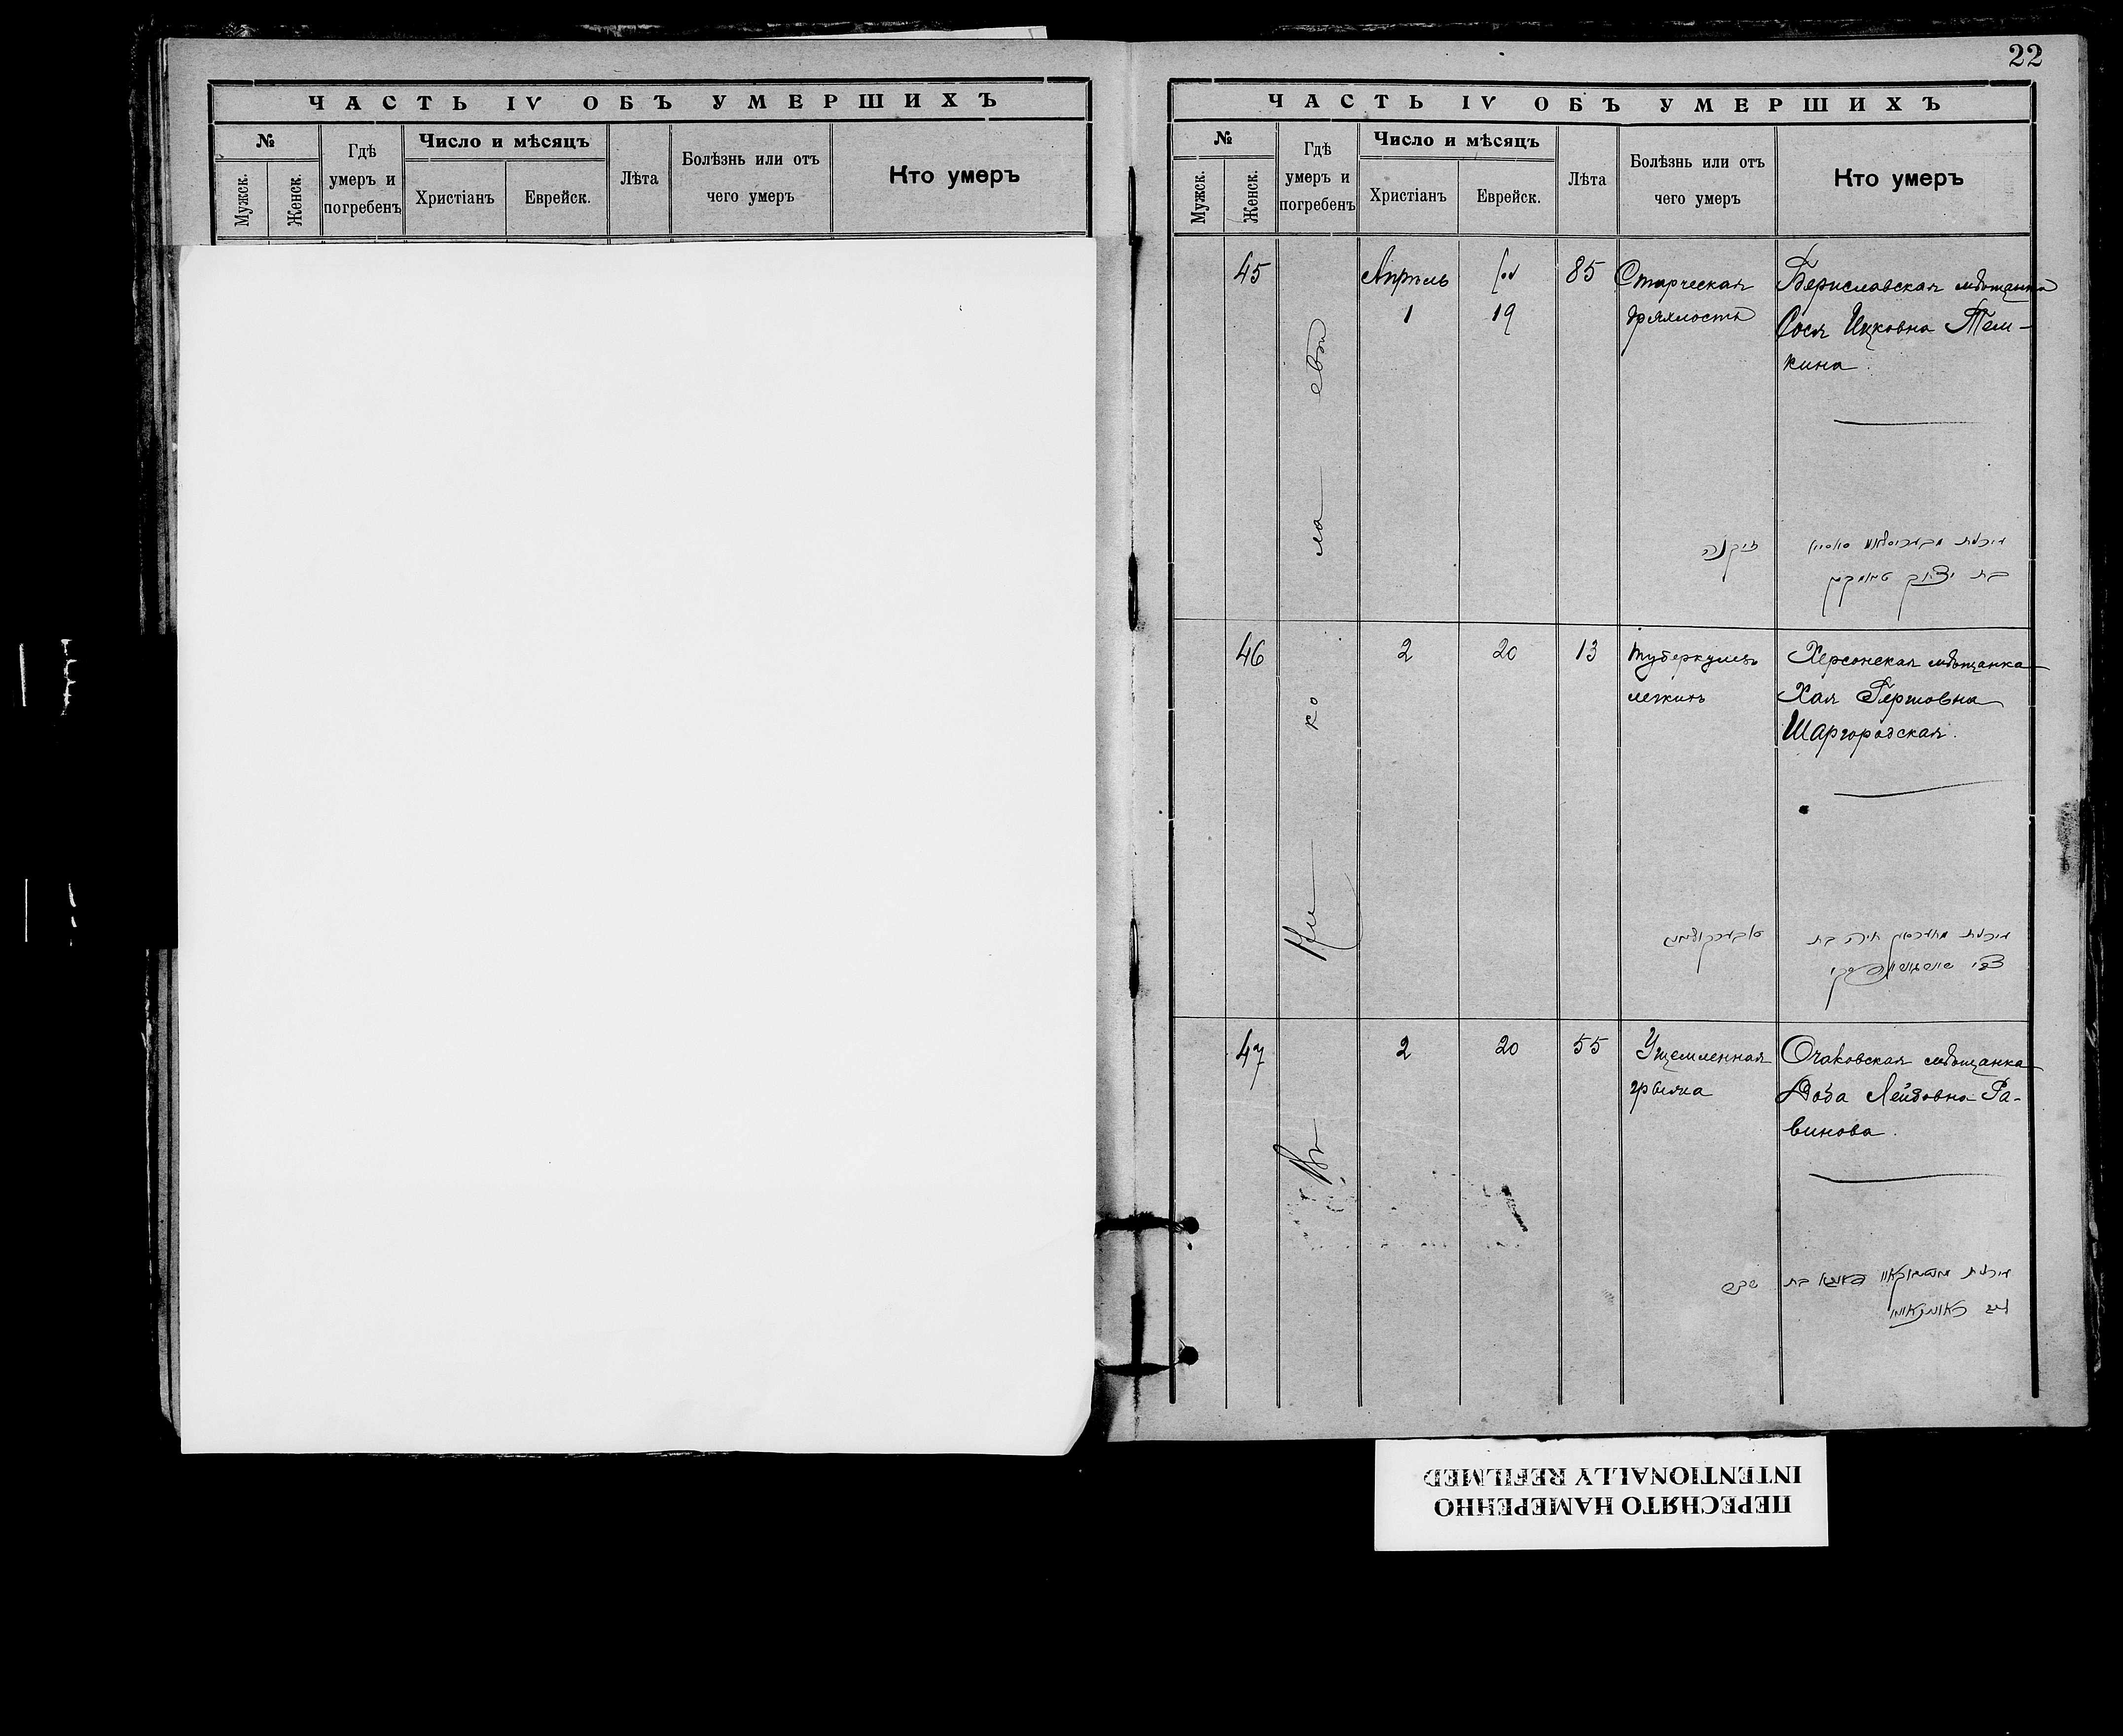 22
ЧАСТЬ IV ОБЪ УМЕРШИХЪ
№
Мужск.
Женск.
Гдѣ
умеръ и
погребенъ
Число и мѣсяцъ
Христіанъ
Еврейск.
Лѣта
Болѣзнь или отъ
чего умеръ
Кто умеръ
ЧАСТЬ IV ОБЪ УМЕРШИХЪ
№
Мужск.
Женск.
Гдѣ
умеръ и
погребенъ
Число и мѣсяцъ
Христіанъ
Еврейск.
Лѣта
Болѣзнь или отъ
чего умеръ
Кто умеръ
Въ Ни ко ла евѣ
45
Апрѣль
1
ניסן
19
85
Старческая
дряхлость
Бериславская мѣщанка
Сося Ицковна Тем-
кина.
זיקנה
בת יצחק
46
2
20
13
туберкулезъ
легкихъ
Херсонская мѣщанка
Хая Гершовна
Шаргородская.
חיה בת
צבי
47
2
20
55
Ущемленная
грыжа
Очаковская мѣщанка
Доба Лейбовна Ра-
винова.
שבר
בת
ПЕРЕСНЯТО НАМЕРЕННО
INTENTIONALLY REFILMED